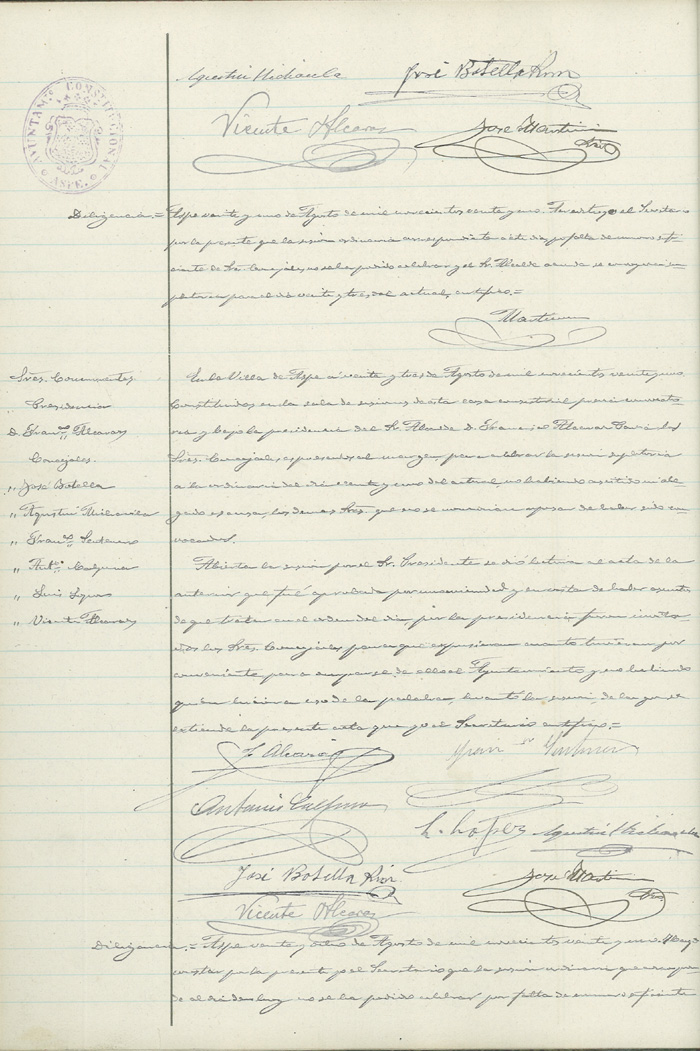 Agustin Michavila
José Botella Riron
AYUNTAM.TO CONSTITUCIONAL
ASPE.
Vicente Alcaraz
Jose Martinez
Srio
Diligencia.= Aspe veinte y uno de Agosto de mil novecientos veinte y uno. el Secretario
por la presente que la sesion ordinaria correspondiente a este dia, por falta de numero sufi-
ciente de Sres. Concejales, no se ha podido celebrar, y el Sr. Alcalde acuerda se convoque su-
pletoria para el dia veinte y tres del actual, certifico.=
Martinez
Sres. Concurrentes
Presidencia
D. Fran.co Alcaraz
Concejales.
„ José Botella
„ Agustin Michavila
„ Fran.co
„ Ant.o Calpena
„ Luis Lopez
„ Vicente Alcaraz
En la Villa de Aspe a veinte y tres de Agosto de mil novecientos veinte y uno.
Constituidos en la sala de sesiones de esta casa consistorial previa convocato-
ria y bajo la presidencia del Sr. Alcalde D. Francisco Alcaraz los
Sres. Concejales expresados al margen, para celebrar la sesion supletoria
a la ordinaria del dia veinte y uno del actual, no habiendo asistido ni ale-
gado escusa, los demas Sres. que no se mencionan apesar de haber sido con-
vocados.
Abierta la sesion por el Sr. Presidente se dió lectura al acta de la
anterior que fué aprobada por unanimidad y en vista de no haber asuntos
de que tratar en el orden del dia, por la presidencia fueron invita-
dos los Sres. Concejales para que expusieran cuanto tuvieran por
conveniente para ocuparse de ello el Ayuntamiento y no habiendo
quien hiciera uso de la palabra, levantó la sesion, de la que se
extiende la presente acta que yo el Secretario certifico.=
F. Alcaraz
Antonio Calpena
L. Lopez
Agustin Michavila
José Botella Riron
Jose Martinez
Srio
Vicente Alcaraz
Diligencia.= Aspe veinte y ocho de Agosto de mil novecientos veinte y uno. Hago
constar por la presente yo el Secretario que la sesion ordinaria que correspon-
de al dia de hoy no se ha podido celebrar por falta de numero suficiente